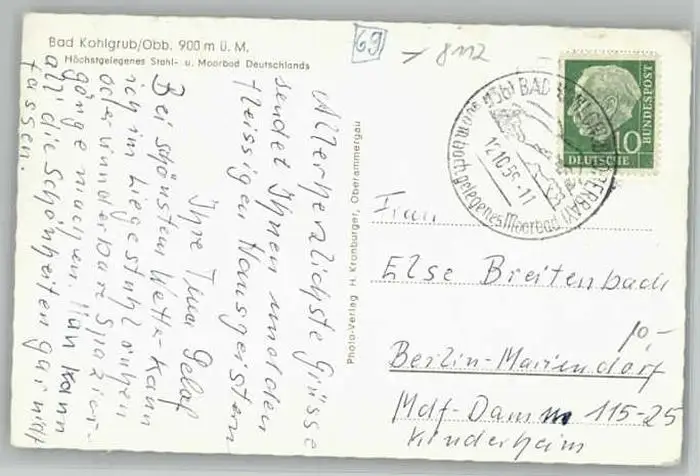 Bad Kohlgrub/Obb. 900 m ü. M.
Höchstgelegenes Stahl- u. Moorbad Deutschlands
69
8112
Allerherzlichste Grüsse
sendet Ihnen und den
fleissigen Hausgeistern
Ihre Tina
Bei schönstem Wetter kann
ich im Liegestuhl ruhen
oder wunderbare Spazier-
gänge machen. Man kann
all die Schönheiten gar nicht
fassen.
Photo-Verlag H. Kronburger, Oberammergau
BAD KOHLGRUB
12.10.56-11
höchstgelegenes Moorbad
10
DEUTSCHE
BUNDESPOST
Frau
Else Breitenbach
10-
Berlin-Mariendorf
Mdf-Damm 115-25
Kinderheim